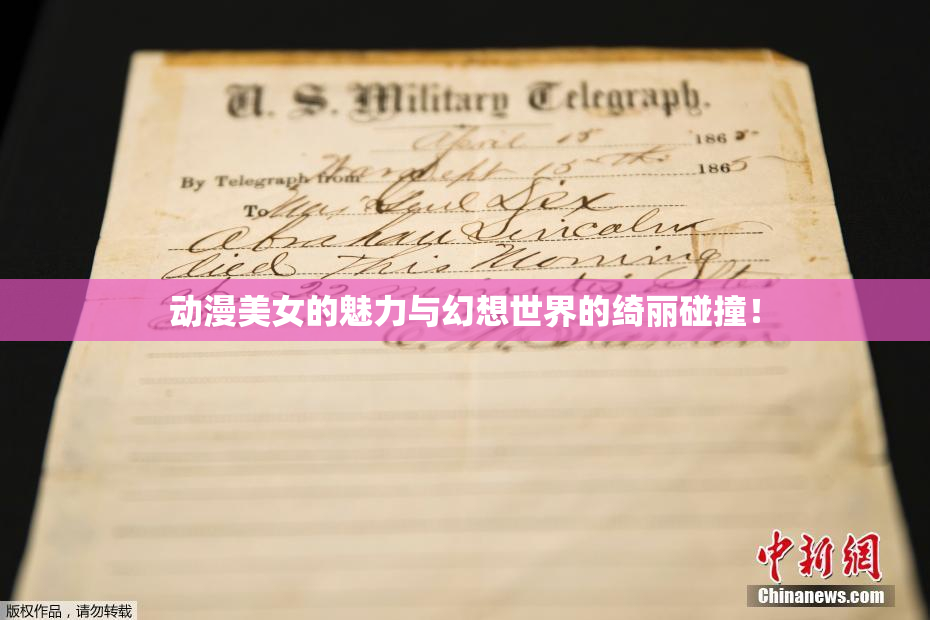 U. S. Military Telegraph.
April 15 1865
By Telegraph from War Dept 15th 1865
To Maj Genl Dix
Abraham Lincoln
died This Morning
22 minutes after
动漫美女的魅力与幻想世界的绮丽碰撞！
E. M. Stanton
中新网
Chinanews.com
版权作品，请勿转载